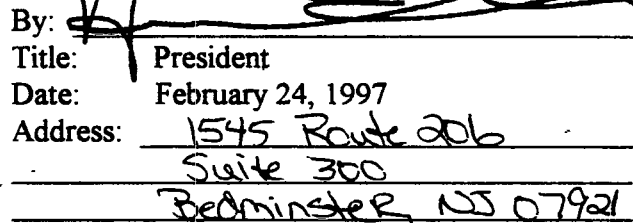 By:
Title: President
Date: February 24, 1997
Address: 1545 Route 206
Suite 300
Bedminster NJ 07921